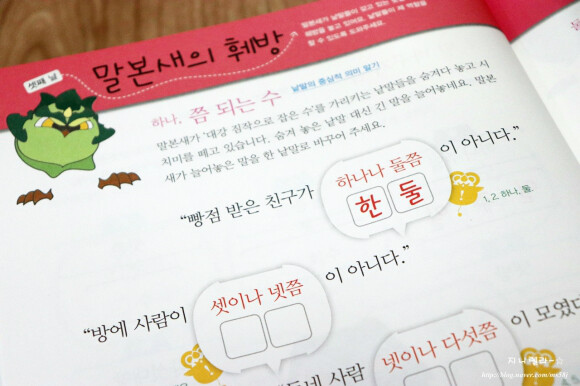 말본새가 낱말들이 갖고 있는
훼방을 놓고 있어요. 낱말들이 제 역할을
할 수 있도록 도와주세요.
셋째 날
말본새의 훼방
하나, 쯤 되는 수
낱말의 중심적 의미 알기
말본새가 '대강 짐작으로 잡은 수'를 가리키는 낱말들을 숨겨 놓고 시
치미를 떼고 있습니다. 숨겨 놓은 낱말 대신 긴 말을 늘어놓네요. 말본
새가 늘어놓은 말을 한 낱말로 바꾸어 주세요.
하나나 둘쯤
"빵점 받은 친구가 한 둘 이 아니다."
1, 2. 하나, 둘.
셋이나 넷쯤
"방에 사람이 이 아니다."
넷이나 다섯쯤
이 모였다
지니 캐라~☆